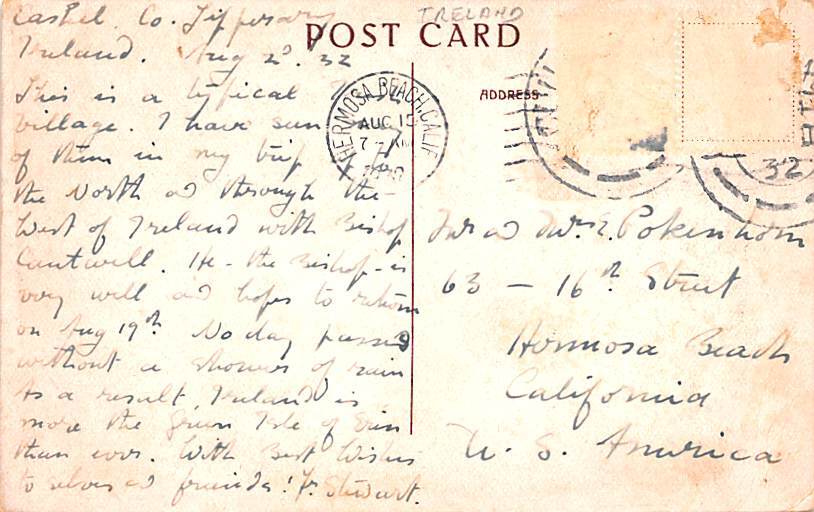 IRELAND
POST CARD
Cashel. Co. Tipperary
Ireland. Aug 2d. 32
This is a typical
Village. I have seen
of them in my trip
the North ad through the
West of Ireland with Bishop
Cantwell. He - the Bishop - is
very well ad hopes to return
on Aug 19th. No day passed
without a shower of rain
As a result, Ireland is
more the Green Isle of Erin
than ever. With Best Wishes
to ad friends! Fr. Stewart.
HERMOSA BEACH, CALIF
AUG 15
7
ADDRESS
32
Mr ad Mrs. E. Pokenhorn
63 - 16th. Street
Hermosa Beach
California
U. S. America